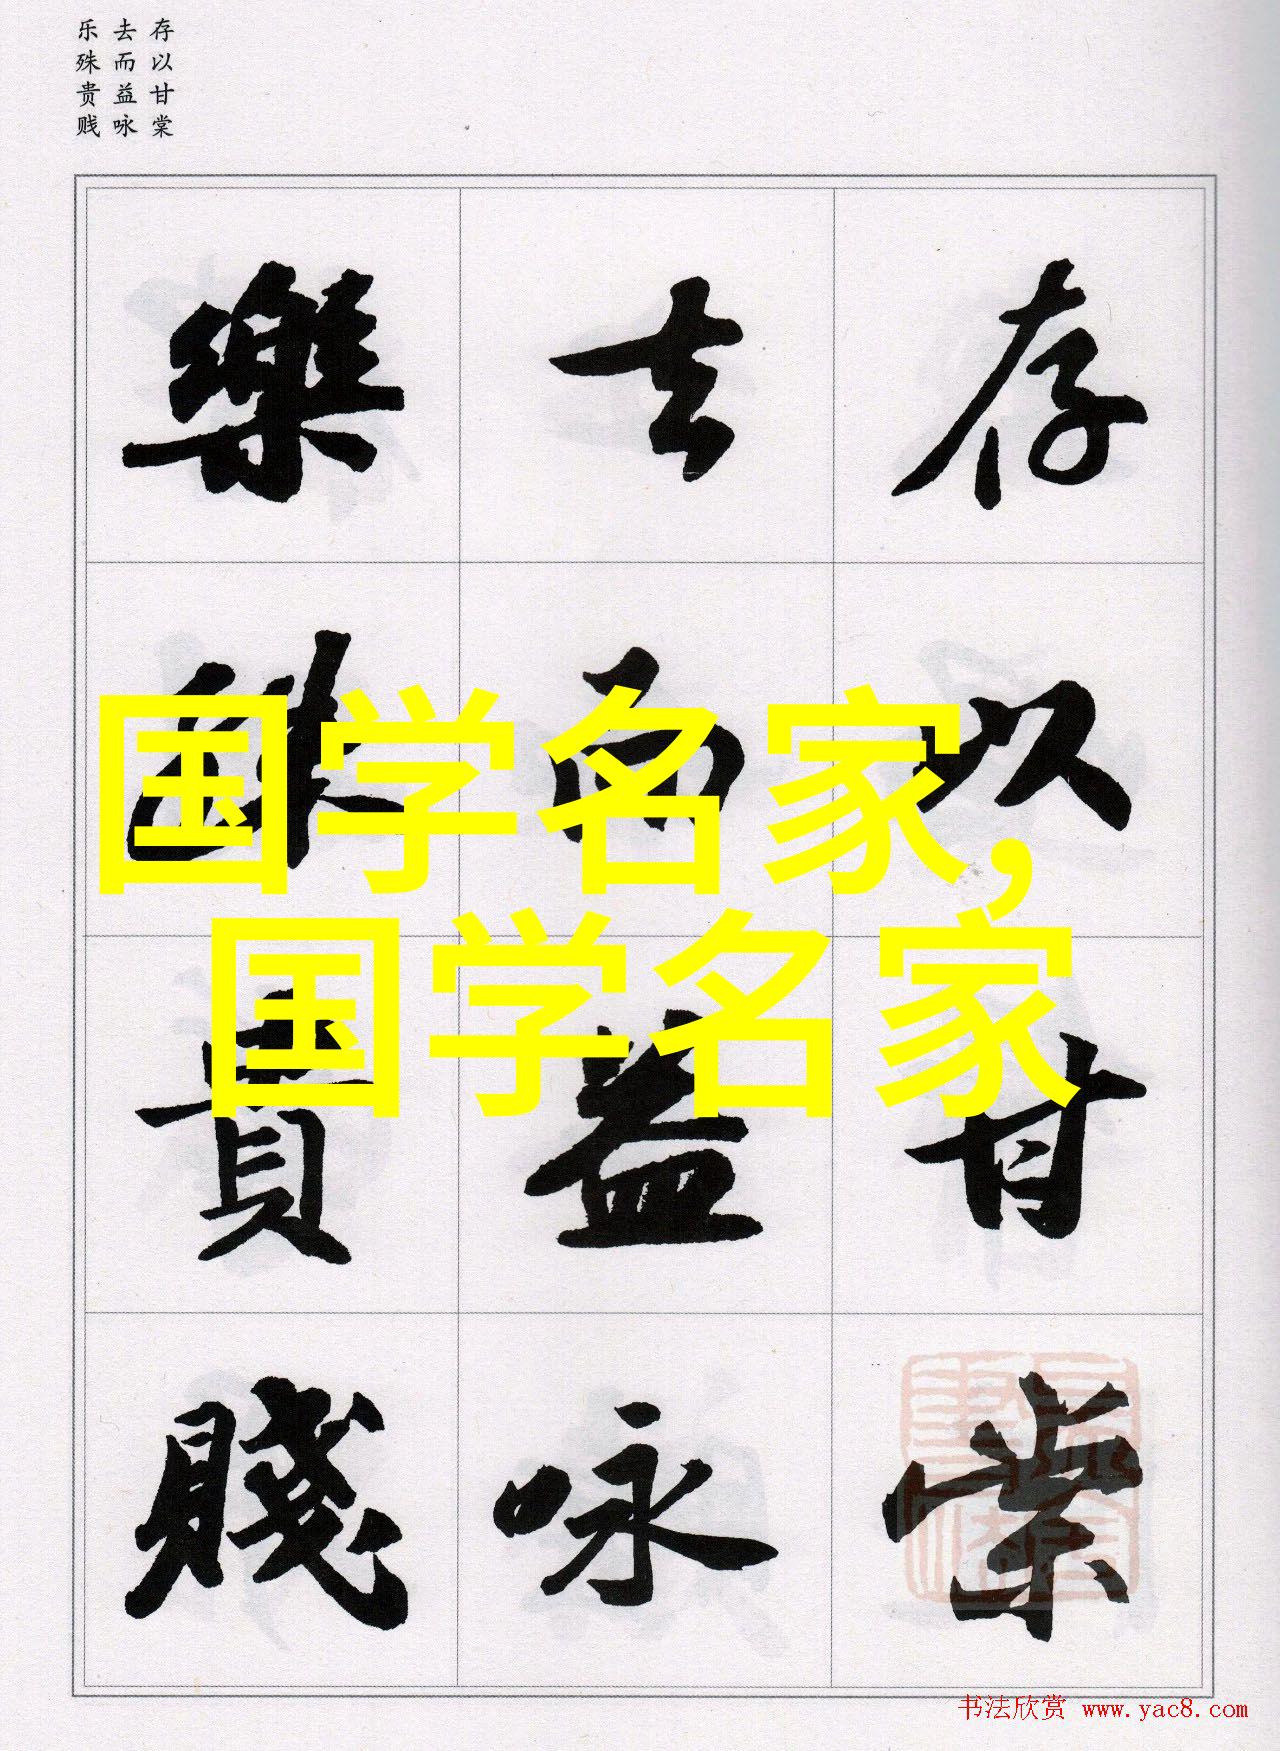 存以甘棠
去而益咏
乐殊贵贱
国学名家，
国学名家
存以甘棠
去而益咏
樂殊貴賤
书法欣赏 www.yac8.com